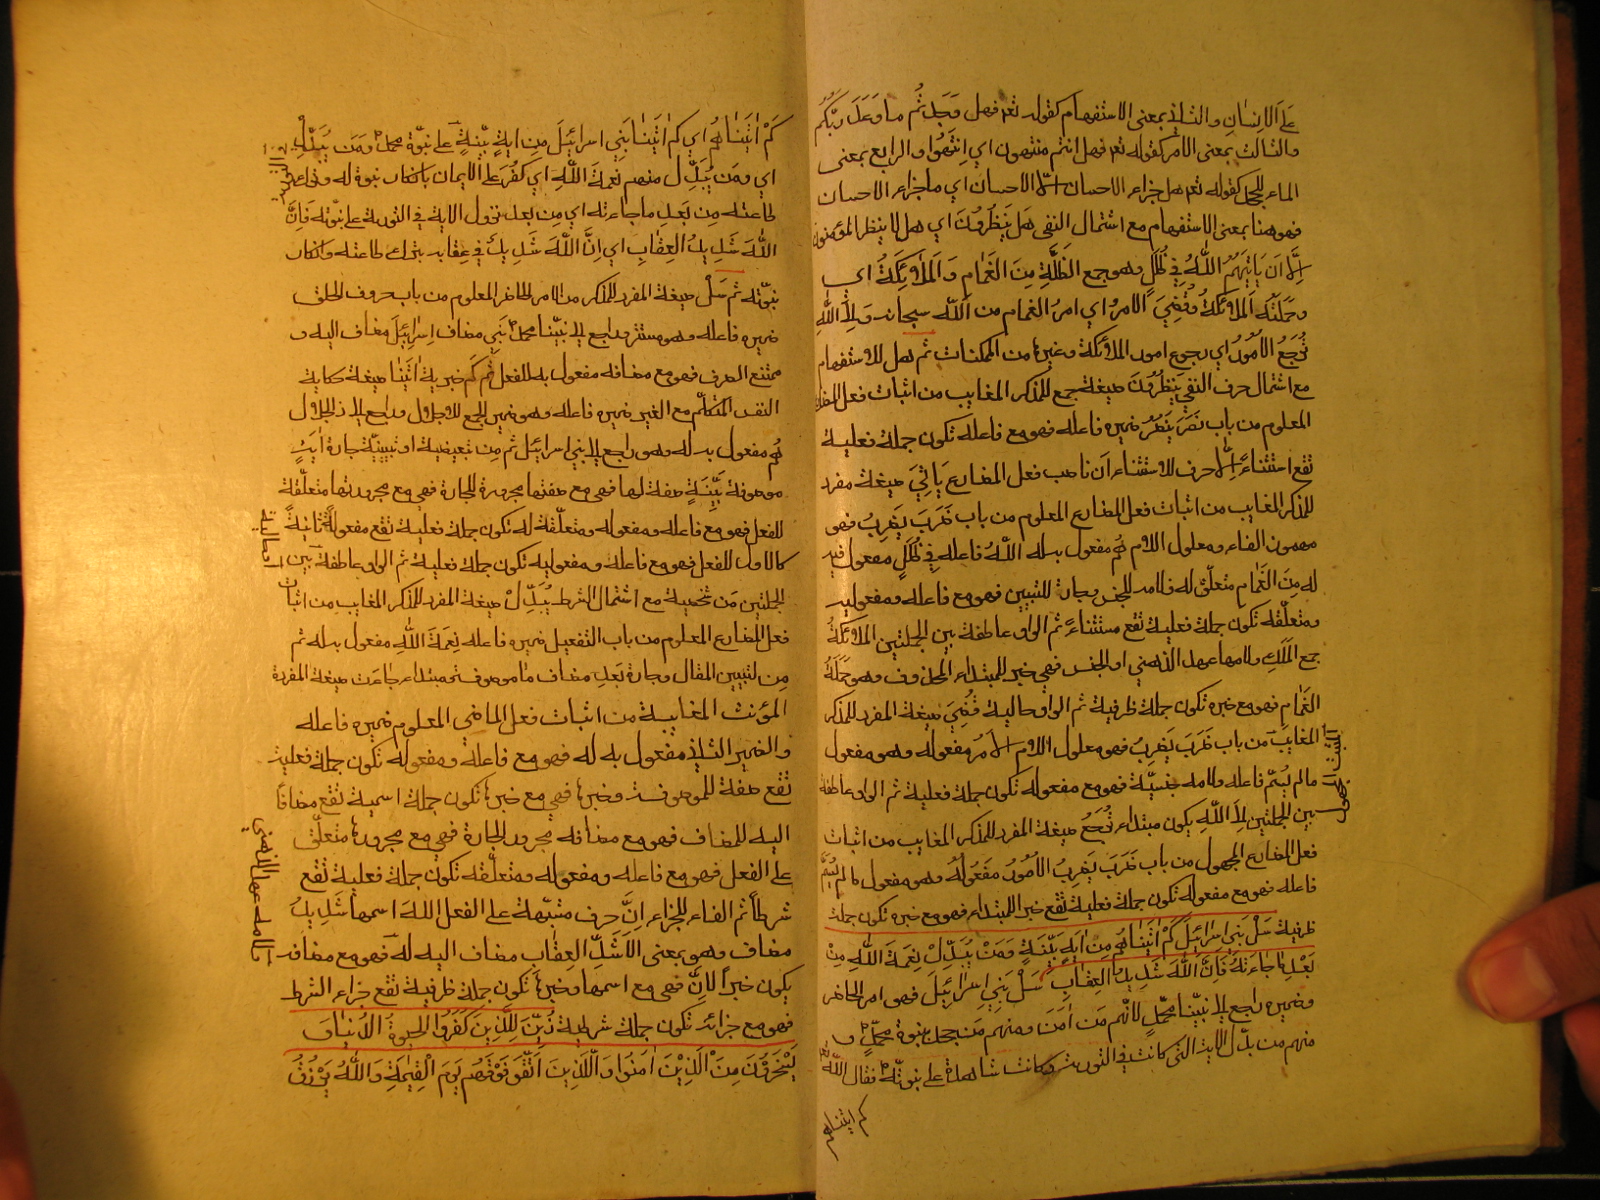 على الانسان والثاني بمعنى الاستفهام كقوله تعه فهل وَجَدتُم ما وَعَدَ ربُّكم
والثالث بمعنى الامر كقوله تعه فهل انتم منتهون اي اِنتَهُوا والرابع بمعنى
الماء للجحد كقوله تعه هل جزاء الاحسان اِلّا الاحسان اي ما جزاء الاحسان
فهو هنا بمعنى الاستفهام مع اشتمال النفى هَل يَنظُرُونَ اي هل لا ينظر المؤمنون
اِلّا اَن يَاتِيَهُمُ اللّٰهُ فِي ظُلَلٍ وهو جمع الظُلَّةِ مِنَ الغَمٰامِ وَالمَلٰٓئِكَةُ اي
وحَمَلَتُه المَلٰٓئِكَةُ وَقُضِيَ الاَمرُ اي امرُ الغمام من اللّٰه سبحانه وَاِلَى اللّٰهِ
تُرجَعُ الاُمُورُ اي رجوع امور الملائكة وغيرها من الممكنات ثم هل للاستفهام
مع اشتمال حرف النفي يَنظُرُونَ صيغة جمع المذكر المغايب من اثبات فعل المضارع
المعلوم من باب نَصَرَ يَنصُرُ ضميره فاعله فهو مع فاعله تكون جملة فعلية
تقع استثناءً اِلّا حرف للاستثناء اَن ناصب فعل المضارع يَاتِيَ صيغة مفرد
المذكر المغايب من اثبات فعل المضارع المعلوم من باب ضَرَبَ يَضرِبُ فهو
مهموز الفاء ومعلول اللام هُم مفعول به له اللّٰهُ فاعله فِي ظُلَلٍ مفعول فيه
له مِنَ الغَمٰامِ متعلّق له فلامه للجنس وجاره للتبيين فهو مع فاعله ومفعوليه
ومتعلّقه تكون جملة فعلية تقع مستثناءً ثم الواو عاطفة بين الجملتين الملائكةُ
جمع المَلَكِ ولامها عهد الذهني او الجنس فهي خبر للمبتداء المحذوف وهو حَمَلَةُ
الغَمٰامِ فهو مع خبره تكون جملة ظرفية ثم الواو حالية قُضِيَ صيغة المفرد المذكر
المغايب من باب ضَرَبَ يَضرِبُ فهو معلول اللام الاَمرُ مفعوله وهو مفعول
مالم يُسَمّ فاعله ولامه جنسيّة فهو مع مفعوله تكون جملة فعلية ثم الواو عاطفة
بين الجملتين اِلَى اللّٰهِ يكون مبتداء تُرجَعُ صيغة المفرد المذكر المغايب من اثبات
فعل المضارع المجهول من باب ضَرَبَ يَضرِبُ الاُمُورُ مَفعُولُهُ وهو مفعول مالم يُسَمَّ
فاعله فهو مع مفعوله تكون جملة فعلية تقع خبر المبتداء فهو مع خبره تكون جملة
ظرفية سَلْ بَنِي اِسرٰائِيلَ كَمْ اٰتَينٰاهُم مِن اٰيَةٍ بَيِّنَةٍ وَمَنْ يُبَدِّلْ نِعمَةَ اللّٰهِ مِنْ
بَعْدِ مٰا جٰاءَتهُ فَاِنَّ اللّٰهَ شَدِيدُ العِقٰابِ سَلْ بَنِي اِسرٰائِيلَ فهو امر الحاضر
وضميره راجع الى نبيّنا محمّدٍ لانّهم مَن اٰمَنَ ومنهم مَن جحد بنبوة محمّدٍ و
منهم من بدّل الاية التى كانت في التورية وكانت شاهدة على نبوتّه فقال اللّٰه
كم اٰتينٰاهم
كَمْ اٰتَينٰاهُم اي كم اٰتَينٰا بَنِي اسرائيلَ مِن اٰيةٍ بيّنةٍ على نبوّة محمد ومَن يُبَدِّلْ
اي ومَن يُبَدِّل منهم نِعمَةَ اللّٰهِ اي كَفَرَ على الايمان بانكار نبوة له
طاعته مِن بَعدِ ما جاءته اي مِن بعد نزول الاية في التورية على نبوّته فَاِنَّ
اللّٰهَ شَدِيدُ العِقٰابِ اي اِنَّ اللّٰهَ شَدِيدٌ في عِقابه بترك طاعته وانكار
نبوّته ثم سَلْ صيغة المفرد المذكر من الامر الحاضر المعلوم من باب حروف الحلق
ضميره فاعله وهو مستتر وراجع الى نبيّنا محمد بَنِي مضاف اِسرٰائِيلَ مضاف اليه و
ممتنع الصرف فهو مع مضافه مفعول به للفعل ثم كَم خبرية اٰتَينٰا صيغة حكاية
النفس المتكلّم مع الغير ضميره فاعله وهو ضمير الجمع للاجلال وراجع الى ذ الجلال
هُم مفعول به له وهو راجع الى بني اسرائيل ثم مِن تبعيضية او تبيينيّة جارة اٰيَةٍ
موصوفة بَيِّنَةٍ صفة لها فهي مع صفتها مجرورة للجارة فهي مع مجرورتها متعلّقة
للفعل فهو مع فاعله ومفعوله ومتعلّقة له تكون جملة فعلية تقع مفعولةً ثانيةً
كالاول للفعل فهو مع فاعله ومفعوليه تكون جملة فعلية ثم الواو عاطفة بين
الجملتين مَن شخصية مع اشتمال الشرط يُبَدِّلْ صيغة المفرد المذكر المغايب من اثبات
فعل المضارع المعلوم من باب التفعيل ضميره فاعله نِعمَةَ اللّٰهِ مفعول به له ثم
مِن لتبيين المقال وجارة بَعدِ مضاف مٰا موصوفة مبتداء جٰاءَت صيغة المفردة
المؤنث المغايبة من اثبات فعل الماضى المعلوم ضميره فاعله
والضمير الثاني مفعول به له فهو مع فاعله ومفعوله تكون جملة فعلية
تقع صفة للموصوفة وخبرها فهي مع خبرها تكون جملة اسمية تقع مضافًا
اليه للمضاف فهو مع مضافه مجرور الجارة فهي مع مجرورها متعلّق
على الفعل فهو مع فاعله ومفعوله ومتعلّقه تكون جملة فعلية تقع
شرطاً ثم الفاء للجزاء اِنَّ حرف مشبّهة على الفعل اللّٰهَ اسمها شَدِيدُ
مضاف وهو بمعنى الاَشَدِّ العِقٰابِ مضاف اليه له فهو مع مضافه
يكون خبراً لاِنَّ فهي مع اسمها وخبرها تكون جملة ظرفية تقع جزاء الشرط
فهو مع جزائه تكون جملة شرطية زُيِّنَ لِلَّذِينَ كَفَرُوا الحيوةُ الدُنيٰا وَ
يَسْخَرُونَ مِنَ الَّذِيْنَ اٰمَنُوا وَالَّذِينَ اتَّقَوا فَوْقَهُم يَومَ القِيٰمَةِ وَاللّٰهُ يَرْزُقُ
او حالية
فلامه عهد الذهني